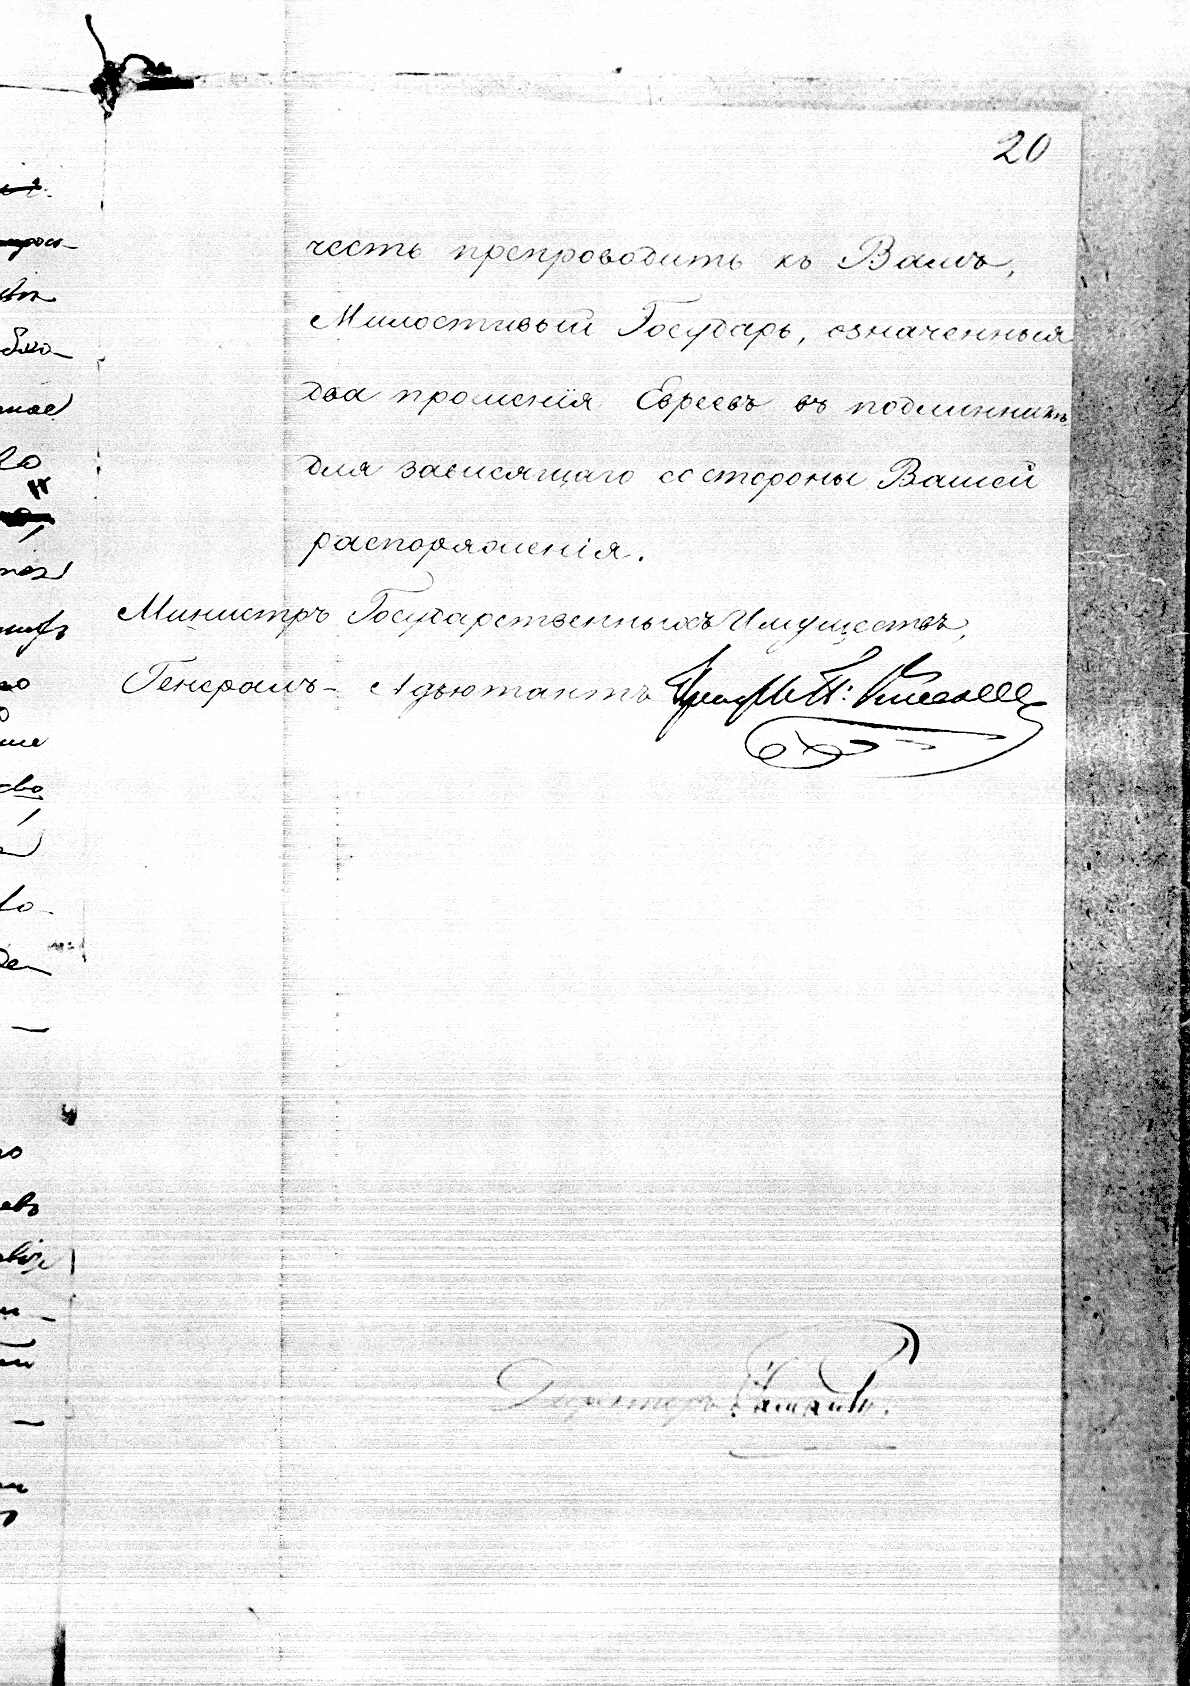 20
честь препроводить къ Вамъ,
Милостивый Государь, означенныя
два прошенія Евреевъ въ подлинникѣ
для зависящаго со стороны Вашей
распоряженія.
Министръ Государственныхъ Имуществъ,
Генералъ-Адъютантъ Графъ П: Киселевъ
Директоръ